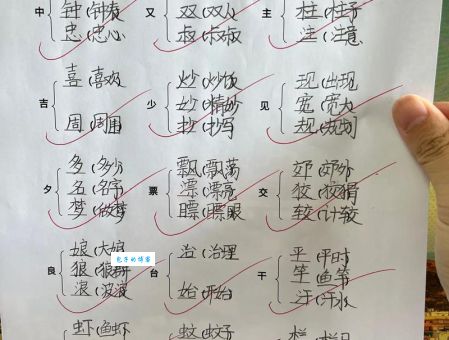 中 钟(钟表 又 双(双人 主 柱(柱子
忠(忠心 叔(叔叔 注(注意
吉 喜(喜欢 少 炒(炒饭 见 现(出现
妙(精妙 宽(宽大
周(周围 抄(抄写 规(规划
夕 多(多少 票 飘(飘荡 交 郊(郊外
名(名字 漂(漂亮 狡(狡猾
梦(做梦 瞟(瞟眼 较(计较
良 娘(大娘 台 治(治理 干 平(平时
狼(狼群 竿(鱼竿
浪(波浪 始(开始 汗(汗水
包子的博客
虾(鱼虾 蚊(蚊子